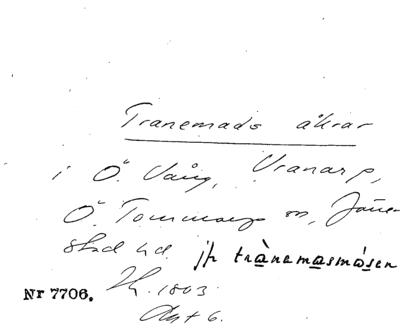 Tranemads åkrar
i Ö. Vång, Vranarp,
Ö. Tommarps sn, Järre-
stad hd. jfr trànamasmósen
Nr 7706. 1803
Akt 6.